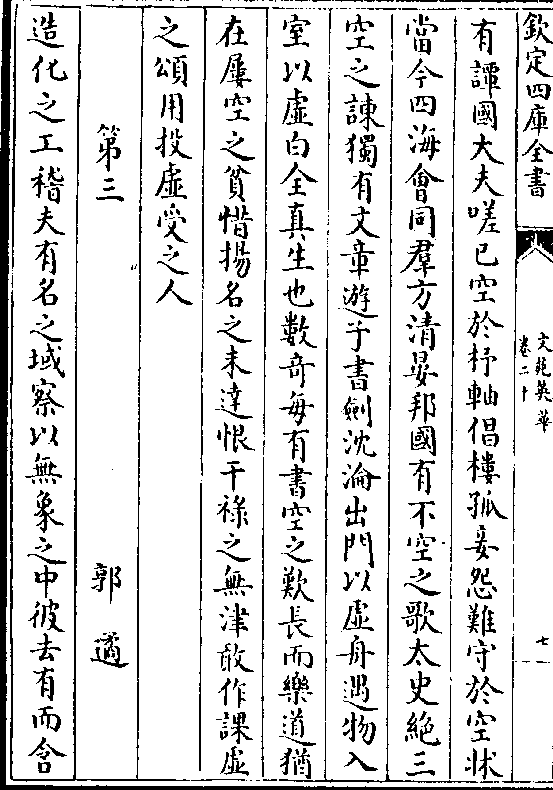 欽定四庫全書
文苑英華
卷二十
七
有譚國大夫嗟已空於杼軸倡樓孤妾怨難守於空牀
當今四海會同羣方清晏邦國有不空之歌太史絶三
空之諫獨有文章遊子書劍沈淪出門以虛舟遇物入
室以虛白全真生也數奇每有書空之歎長而樂道猶
在屢空之貧惜揚名之未達恨干祿之無津敢作課虛
之頌用投虛受之人
第三
郭遹
造化之工稽夫有名之域察以無象之中彼去有而含